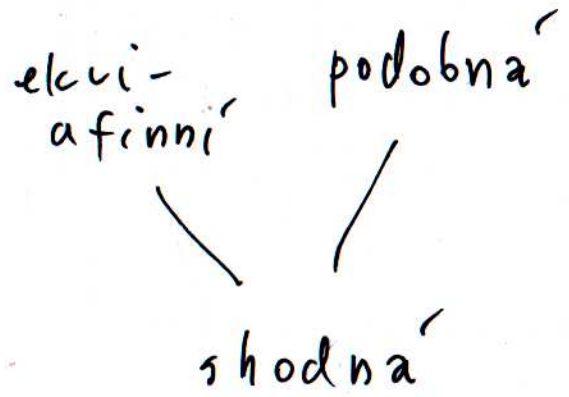 ekvi-
afinní
podobná
shodná